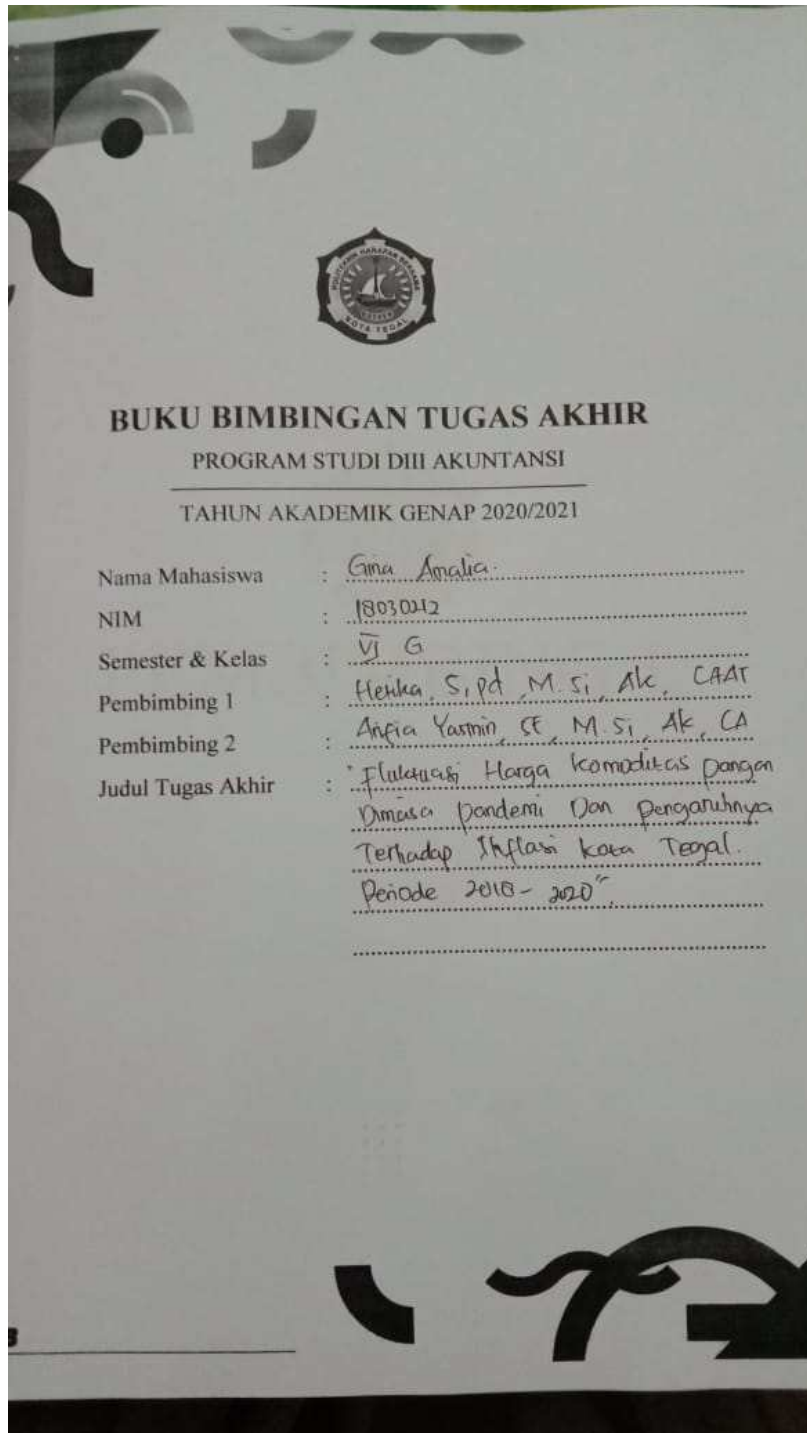 POLITEKNIK HARAPAN BERSAMA
KOTA TEGAL
BUKU BIMBINGAN TUGAS AKHIR
PROGRAM STUDI DIII AKUNTANSI
TAHUN AKADEMIK GENAP 2020/2021
Nama Mahasiswa : Gina Amalia.
NIM : 18030212
Semester & Kelas : VI G
Pembimbing 1 : Herika, S,pd, M.Si, Ak, CAAT
Pembimbing 2 : Yasmin, SE, M.Si, Ak, CA
Judul Tugas Akhir : "Fluktuasi Harga Komoditas Pangan
Dimasa Pandemi Dan Pengaruhnya
Terhadap Inflasi Kota Tegal.
Periode 2018 - 2020"